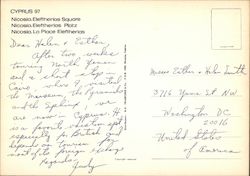 CYPRUS 97
Nicosia. Eleftherias Square
Nicosia. Eleftherias Platz
Nicosia. La Place Eleftherias
Dear Helen & Esther,
After two weeks
touring North Yemen
and a short stop in
Cairo where I visited
the museum, the Pyramids
and the Sphinx, we
are now in Cyprus. It
is a favorite vacation spot
especially for British and
depends on tourism for
most of its foreign
Regards,
Judy
Misses Esther & Helen Smith
3716 Yuma St. NW
Washington DC
20016
United States
of America